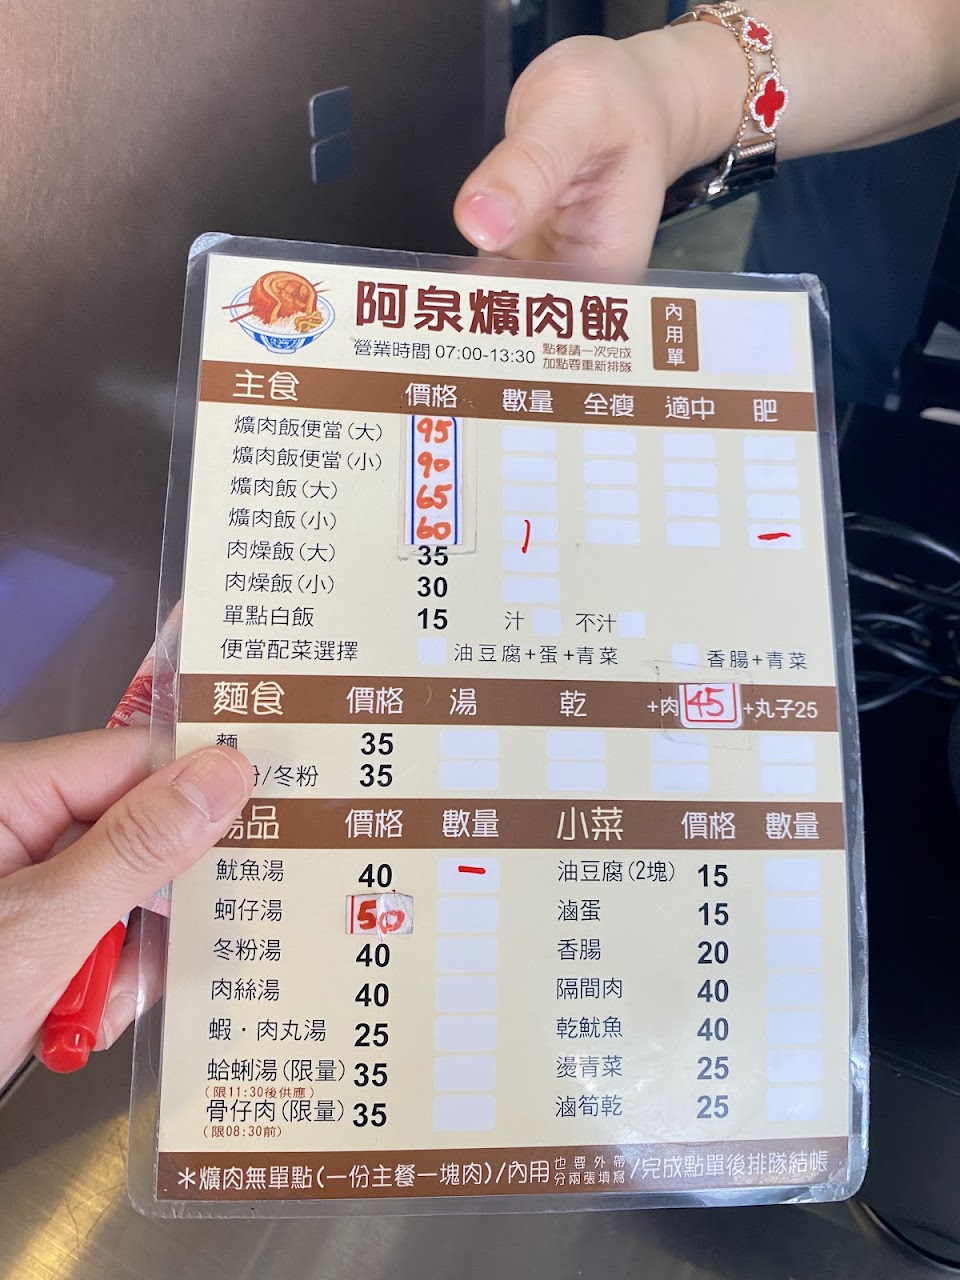 阿泉爌肉飯
營業時間 07:00-13:30 點餐請一次完成
加點要重新排隊
內用單
主食 價格 數量 全瘦 適中 肥
爌肉飯便當(大) 95
爌肉飯便當(小) 90
爌肉飯(大) 65
爌肉飯(小) 60
肉燥飯(大) 35
肉燥飯(小) 30
單點白飯 15 汁 不汁
便當配菜選擇 油豆腐+蛋+青菜 香腸+青菜
麵食 價格 湯 乾 +肉 45 +丸子25
麵 35
粉/冬粉 35
湯品 價格 數量 小菜 價格 數量
魷魚湯 40 油豆腐(2塊) 15
蚵仔湯 50 滷蛋 15
冬粉湯 40 香腸 20
肉絲湯 40 隔間肉 40
蝦・肉丸湯 25 乾魷魚 40
蛤蜊湯(限量) 35 燙青菜 25
(限11:30後供應)
骨仔肉(限量) 35 滷筍乾 25
(限08:30前)
*爌肉無單點(一份主餐一塊肉)/內用也要外帶分兩張填寫/完成點單後排隊結帳